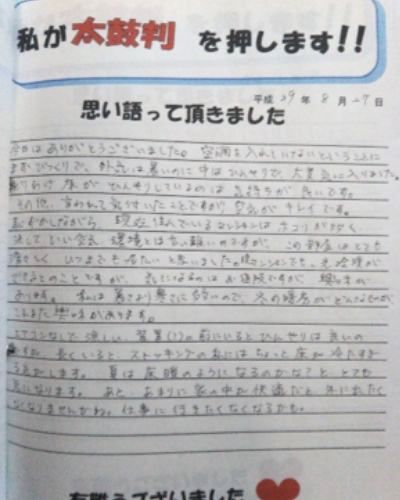 私が太鼓判を押します!!
平成29年8月27日
思い語って頂きました
今日はありがとうございました。空調を入れていないということに
まずびっくりで、外気は暑いのに中はひんやりで、大変気に入りました。
取りわけ床がひんやりしているのは気持ちが良いです。
その他、言われて気付いたことですが空気がキレイです。
現在住んでいるマンションはホコリが多く、
決していい空気、環境とは言い難いのですが、この部屋はとても
いつまでも居たいと思いました。マンションでも
できるとのことですが、気になるのはお値段ですが、興味が
あります。私は暑さより寒さに弱いので、冬の暖房がどんなものか
これまた興味があります。
エアコンなしで涼しい、の前にいるとひんやりは良いの
ですが、長くいると、ストッキングの私にはちょっと床が冷たすぎ
る気がします。夏は床暖のようになるのかな?ととても
気になります。あと、あまりに家の中が快適だと外に出たく
なくなりませんかね。仕事に行きたくなくなるかも。
有難うございました